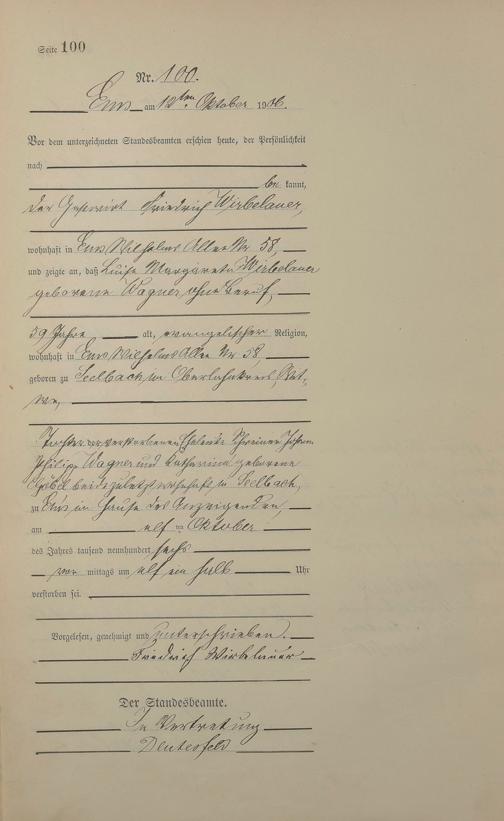 Seite 100
Nr. 100.
Ems am 12ten Oktober 1906.
Vor dem unterzeichneten Standesbeamten erschien heute, der Persönlichkeit
nach
be kannt,
der Gastwirt Friedrich Wirbelauer,
wohnhaft in Ems Wilhelms Allee Nr 58,
und zeigte an, daß Luise Margarete Wirbelauer
geborene Wagner, ohne Beruf,
59 Jahre alt, evangelischer Religion,
wohnhaft in Ems Wilhelms Allee Nr 58,
geboren zu Seelbach im Oberlahnkreis,
Tochter der verstorbenen Eheleute Schreiner Johann
Philipp Wagner und Katharina geborene
beide zuletzt wohnhaft in Seelbach,
zu Ems im Hause des Anzeigenden,
am elf ten Oktober
des Jahres tausend neunhundert sechs
vor mittags um elf ein halb Uhr
verstorben sei.
Vorgelesen, genehmigt und unterschrieben.
Friedrich Wirbelauer
Der Standesbeamte.
In Vertretung